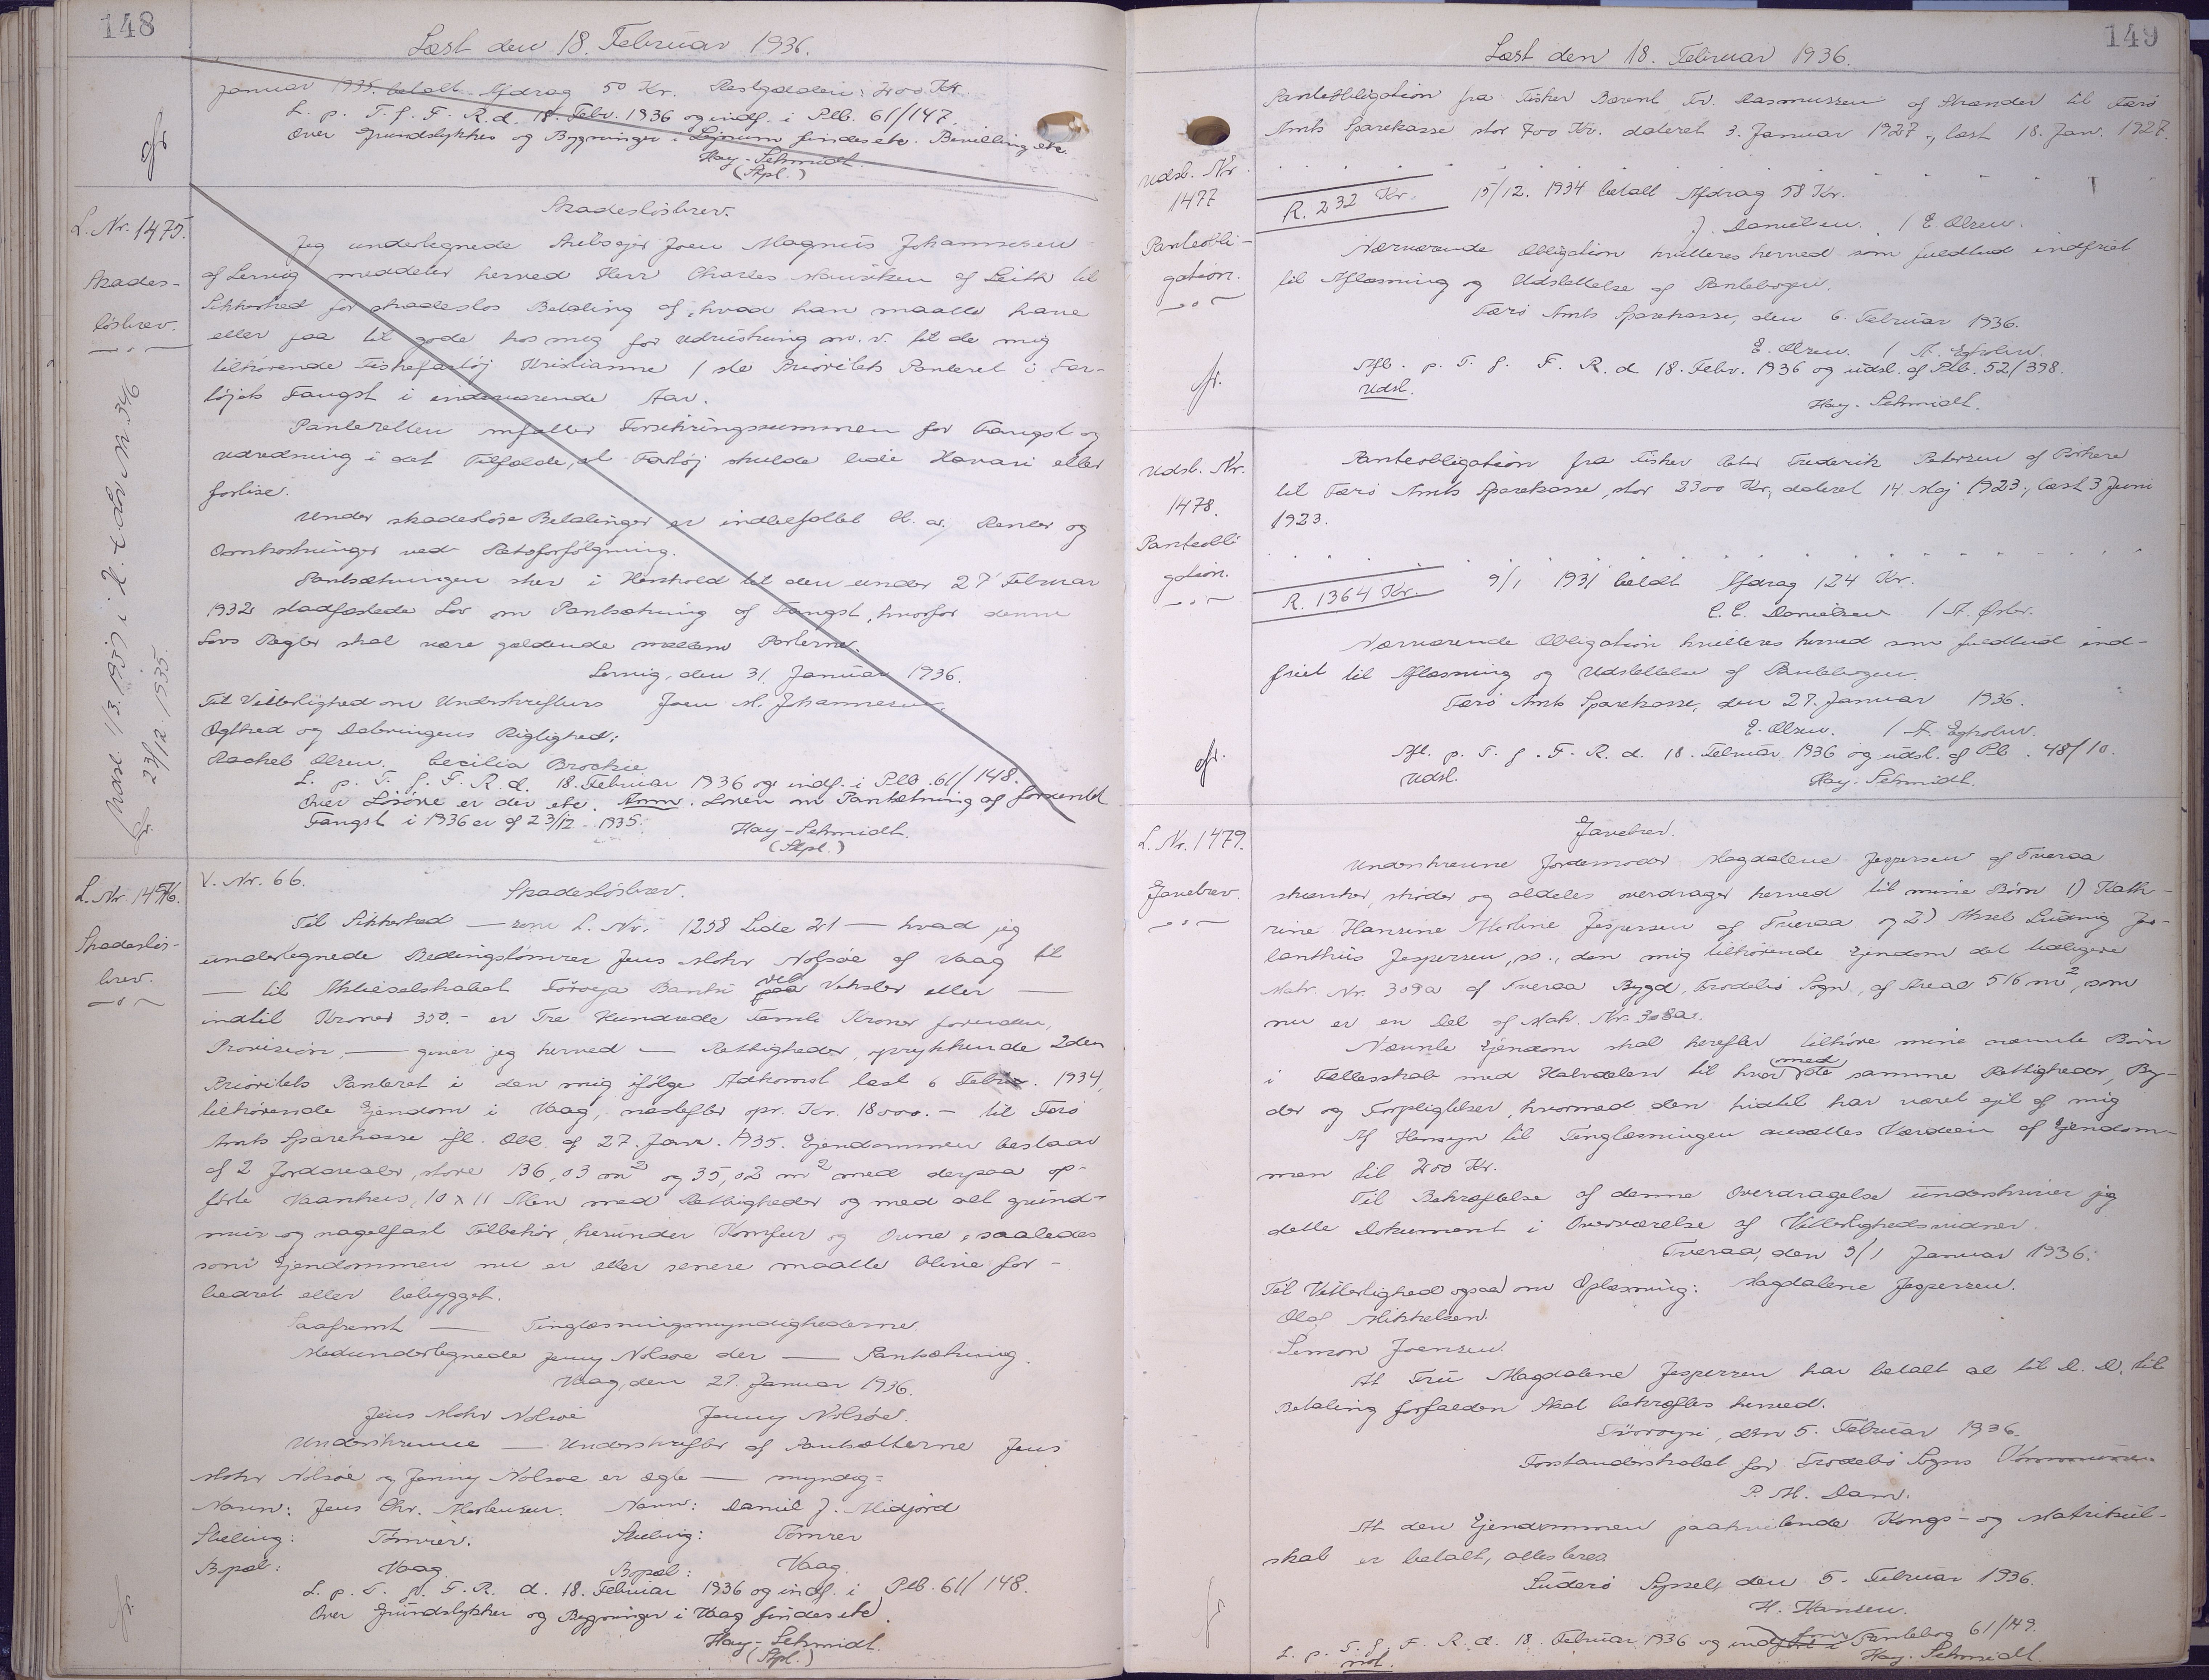 148
Læst den 18. Februar 1936.
Januar 1935. betalt Afdrag 50 Kr. Restgælden: 400 Kr.
L. p. T. f. F. R. d. 18. Febr. 1936 og indf. i Ptb. 61/147.
Over Grundstykker og Bygninger i findes etc. Bevilling etc.
Hay-Schmidt.
(Stpl.)
L. Nr. 1475.
Skades-
løsbrev.
Skadesløsbrev.
Jeg undertegnede Skibsejer Joen Magnus Johannesen
af Lervig meddeler herved Herr Charles Mauritzen af Leith til
Sikkerhed for skadesløs Betaling af, hvad han maatte have
eller faa til gode hos mig for Udrustning m. v. til de mig
tilhørende Fiskefartøj Kristianne 1ste Prioritets Panteret i Far-
tøjets Fangst i indeværende Aar.
Panteretten omfatter Forsikringssummen for Fangst og
Udredning i det Tilfælde, at Fartøj skulde lide Havari eller
forlise.
Under skadesløse Betalinger er indbefattet bl. a. Renter og
Omkostninger ved Retsforfølgning.
Pantsætningen sker i Henhold til den under 27 Februar
1932 stadfæstede Lov om Pantsætning af Fangst, hvorfor denne
Lovs Regler skal være gældende mellem Parterne.
Lervig, den 31. Januar 1936.
Til Vitterlighed om Underskriftens Joen M. Johannesen.
Ægthed og Dateringens Rigtighed:
Rachel Olsen. Cecilia Brockie
L. p. T. f. F. R. d. 18. Februar 1936 og indf. i Ptb. 61/148.
Over Løsøre er der etc. Anm. Loven om Pantsætning af forventet
Fangst i 1936 er af 23/12 - 1935.
Hay-Schmidt.
(Stpl.)
23/12. 1935.
L. Nr. 1476.
Skadesløs-
brev.
V. Nr. 66.
Skadesløsbrev.
Til Sikkerhed — som L. Nr. 1258 Side 21 — hvad jeg
undertegnede Bedingstømrer Jens Mohr Nolsøe af Vaag til
— til Aktieselskabet Føroya Banki paa ved Veksler eller —
indtil Kroner 350.- er Tre Hundrede Femti Kroner foruden,
Provision, — giver jeg herved — Rettigheder oprykkende 2den
Prioritets Panteret i den mig ifølge Adkomst læst 6 Febru. 1934,
tilhørende Ejendom i Vaag, næstefter opr. Kr. 18000.- til Færø
Amts Sparekasse ifl. Obl. af 27. Janr. 1935. Ejendommen bestaar
af 2 Jordarealer, store 136,03 m² og 35,02 m² med derpaa op-
førte Vaanhus, 10 x 11 Alen med Rettigheder og med alt grund-
mur og nagelfast Tilbehør, herunder Komfur og Ovne, saaledes
som Ejendommen nu er eller senere maatte blive for-
bedret eller bebygget.
Saafremt — Tinglæsningsmyndighederne.
Medundertegnede Jenny Nolsøe der — Pantsætning.
Vaag, den 27. Januar 1936.
Jens Mohr Nolsøe Jenny Nolsøe.
Underskrevne — Underskrifter af Pantsætterne Jens
Mohr Nolsøe og Jenny Nolsøe er ægte — myndig-
Navn: Jens Chr. Mortensen. Navn: Daniel J. Midjord
Stilling: Tømrer. Stilling: Tømrer
Bopæl: Vaag. Bopæl: Vaag.
L. p. T. f. F. R. d. 18. Februar 1936 og indf. i Ptb. 61/148.
Over Grundstykker og Bygninger i Vaag findes etc.
Hay-Schmidt.
(Stpl.)
149
Læst den 18. Februar 1936.
Udsl. Nr.
1477
Panteobli-
gation.
Panteobligation fra Fisker Bærent Fr. Rasmussen af Strænder til Færø
Amts Sparekasse stor 700 Kr. dateret 3. Januar 1927., læst 18. Jan. 1927.
R. 232 Kr. 15/12. 1934 betalt Afdrag 58 Kr.
J. Danielsen. / E. Olsen.
Nærværende Obligation kvitteres herved som fuldtud indfriet
til Aflæsning og Udslettelse af Pantebogen.
Færø Amts Sparekasse, den 6. Februar 1936.
E. Olsen. / A. Egholm.
Afl. p. T. f. F. R. d. 18. Febr. 1936 og udsl. af Ptb. 52/398.
Udsl.
Hay-Schmidt.
Udsl. Nr.
1478.
Panteobli
gation.
Panteobligation fra Fisker Peter Frederik Petersen af Porkere
til Færø Amts Sparekasse, stor 2300 Kr, dateret 14. Maj 1923., læst 3 Juni
1923.
R. 1364 Kr. 9/1 1931 betalt Afdrag 124 Kr.
C. C. Danielsen / A. Øster.
Nærværende Obligation kvitteres herved som fuldtud ind-
friet til Aflæsning og Udslettelse af Pantebogen.
Færø Amts Sparekasse, den 27. Januar 1936.
E. Olsen. / A. Egholm.
Afl. p. T. f. F. R. d. 18. Februar 1936 og udsl. af Ptb. 48/10.
Udsl.
Hay-Schmidt.
L. Nr. 1479.
Gavebrev.
Gavebrev.
Underskrevne Jordemoder Magdalene Jespersen af Tveraa
skænker, skøder og aldeles overdrager herved til mine Børn 1) Kath-
rine Hansine Marline Jespersen af Tveraa og 2) Aksel Ludvig Jo-
lanthus Jespersen, sa., den mig tilhørende Ejendom det beliggere
Matr. Nr. 309a af Tveraa Bygd, Frodebø Sogn, af Areal 516 m², som
nu er en Del af Matr. Nr. 308a.
Nævnte Ejendom skal herefter tilhøre mine nævnte Børn
i Fællesskab med Halvdelen til hver med de samme Rettigheder, Byr-
der og Forpligtelser, hvormed den hidtil har været ejet af mig
Af Hensyn til Tinglæsningen ansættes Værdien af Ejendom-
men til 200 Kr.
Til Bekræftelse af denne Overdragelse underskriver jeg
dette Dokument i Overværelse af Vitterlighedsvidner.
Tveraa, den 9/1 Januar 1936.
Til Vitterlighed ogsaa om Oplæsning: Magdalene Jespersen.
Olaf Mikkelsen.
Simon Joensen.
At Fru Magdalene Jespersen har betalt al til D. D. til
Betaling forfalden Skat bekræftes herved.
Tvøroyri, den 5. Februar 1936.
Forstanderskabet for Frodebø Sogns Kommune.
P. M. Dam.
At den Ejendommen paahvilende Kongs- og Matrikul-
skat er betalt, attesteres
Suderø Syssel, den 5. Februar 1936.
H. Hansen.
L. p. T. f. F. R. d. 18. Februar 1936 og indført i Pantebog 61/149.
Hay-Schmidt